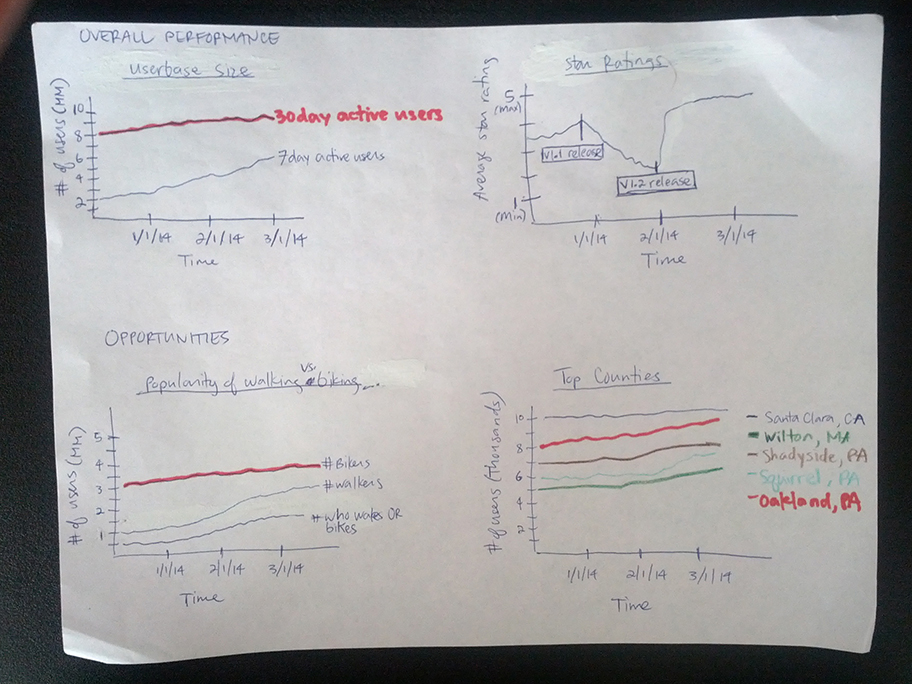 OVERALL PERFORMANCE
Userbase Size
# of users (MM)
10
8
6
4
2
30day active users
7day active users
1/1/14 2/1/14 3/1/14
Time
Star Ratings
Average star rating
5
(max)
1
(Min)
V1.1 release
V1.2 release
1/1/14 2/1/14 3/1/14
Time
OPPORTUNITIES
Popularity of walking vs. biking
# of users (MM)
5
4
3
2
1
# Bikers
# walkers
# who walks OR
bikes
1/1/14 2/1/14 3/1/14
Time
Top Counties
# of users (thousands)
10
8
6
4
2
Santa Clara, CA
Wilton, MA
Shadyside, PA
Squirrel, PA
Oakland, PA
1/1/14 2/1/14 3/1/14
Time